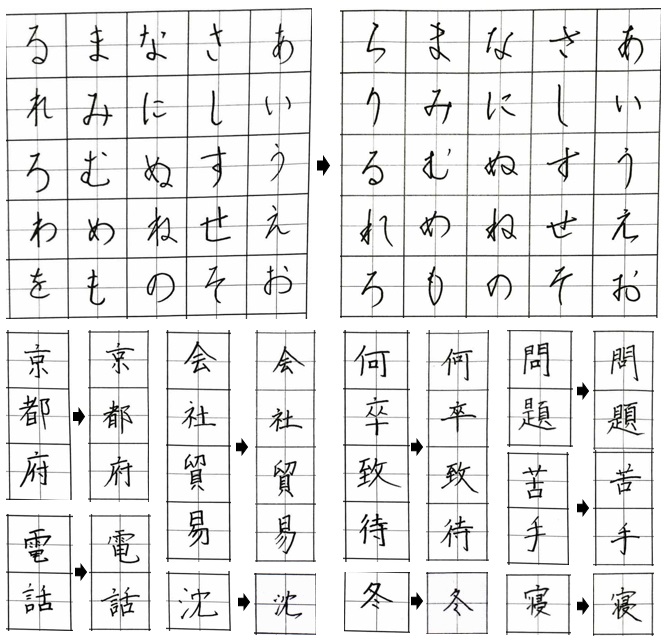 あいうえお
さしすせそ
なにぬねの
まみむめも
るれろわを
あいうえお
さしすせそ
なにぬねの
まみむめも
らりるれろ
京都府
京都府
電話
電話
会社貿易
会社貿易
沈
沈
何卒致待
何卒致待
冬
冬
問題
問題
苦手
苦手
寝
寝